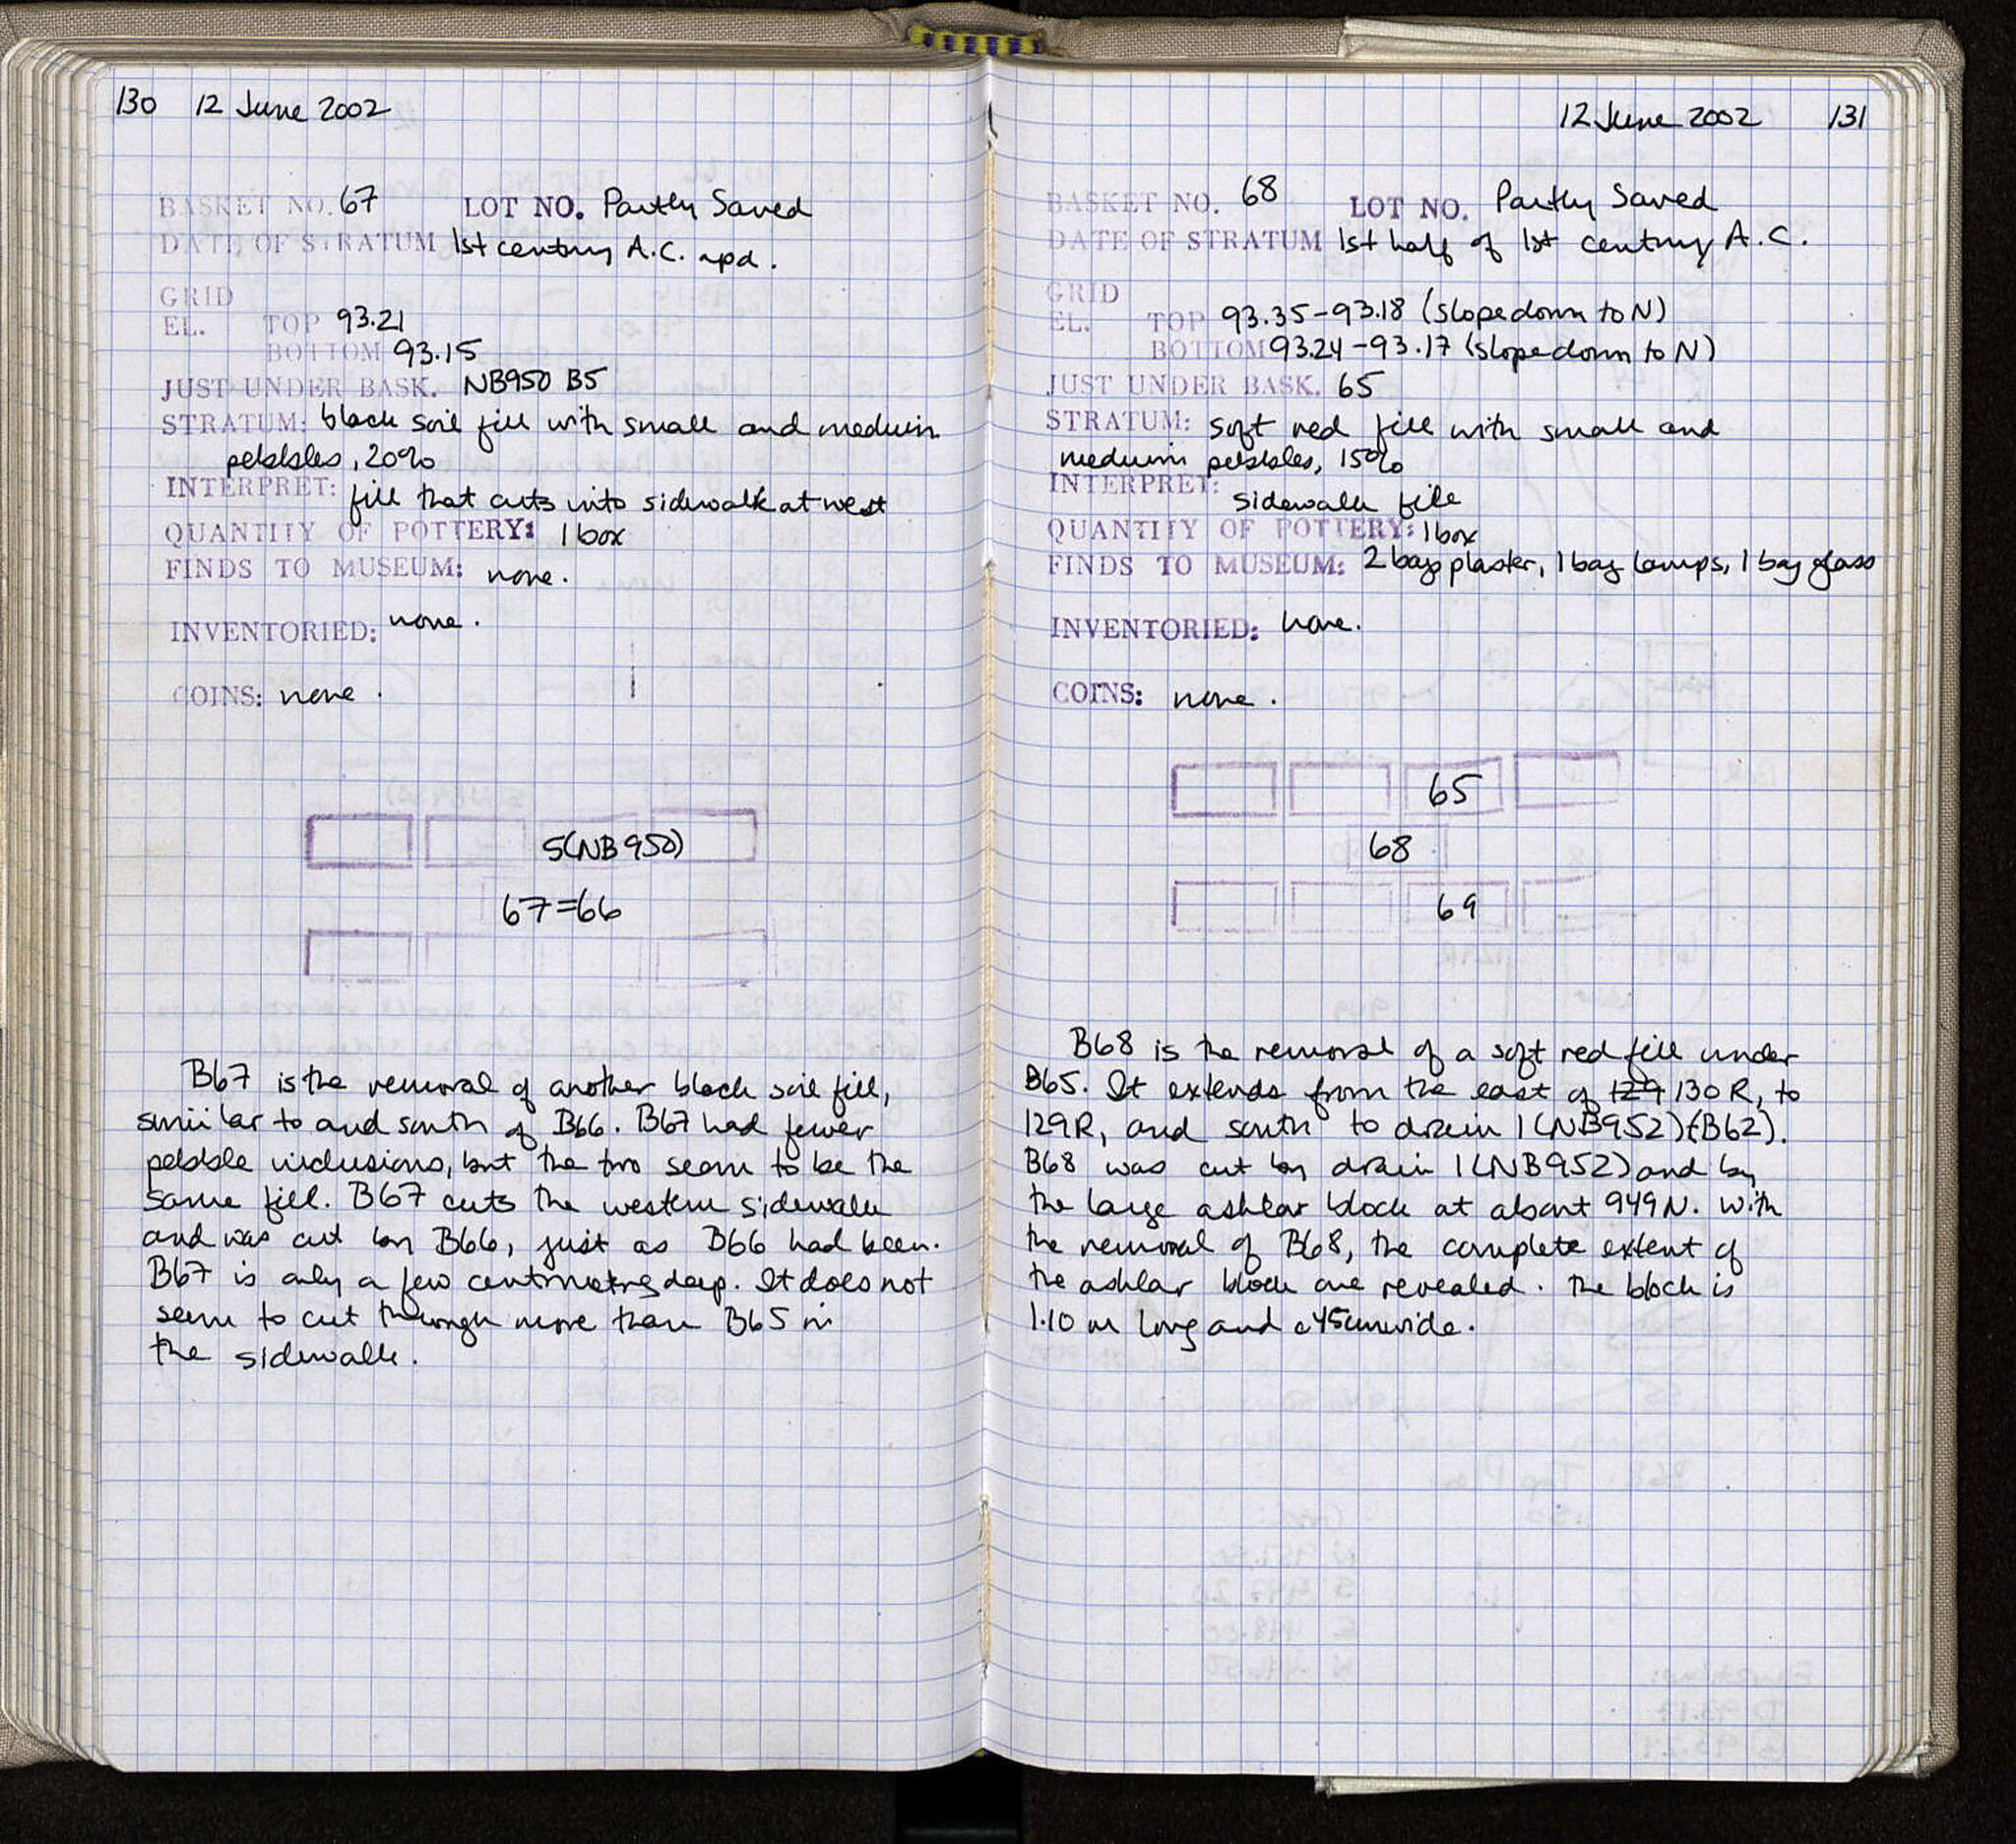 130 12 June 2002
BASKET NO. 67 LOT NO. Partly Saved
DATE OF STRATUM 1st century A.C. npd.
GRID
EL. TOP 93.21
BOTTOM 93.15
JUST UNDER BASK. NB950 B5
STRATUM: black soil fill with small and medium
pebbles, 20%
INTERPRET: fill that cuts into sidewalk at west
QUANTITY OF POTTERY: 1 box
FINDS TO MUSEUM: none.
INVENTORIED: none.
COINS: none.
5(NB950)
67=66
B67 is the removal of another black soil fill,
similar to and south of B66. B67 had fewer
pebble inclusions, but the two seem to be the
same fill. B67 cuts the western sidewalk
and was cut by B66, just as B66 had been.
B67 is only a few centimeters deep. It does not
seem to cut through more than B65 in
the sidewalk.
12 June 2002 131
BASKET NO. 68 LOT NO. Partly Saved
DATE OF STRATUM 1st half of 1st century A.C.
GRID
EL. TOP 93.35-93.18 (slope down to N)
BOTTOM 93.24-93.17 (slope down to N)
JUST UNDER BASK. 65
STRATUM: soft red fill with small and
medium pebbles, 15%
INTERPRET: sidewalk fill
QUANTITY OF POTTERY: 1 box
FINDS TO MUSEUM: 2 bags plaster, 1 bag lamps, 1 bag glass
INVENTORIED: none.
COINS: none.
65
68
69
B68 is the removal of a soft red fill under
B65. It extends from the east of 129 130 R, to
129R, and south to drain 1 (NB952)(B62).
B68 was cut by drain 1 (NB952) and by
the large ashlar block at about 949N. With
the removal of B68, the complete extent of
the ashlar block are revealed. The block is
1.10 m long and c45cm wide.